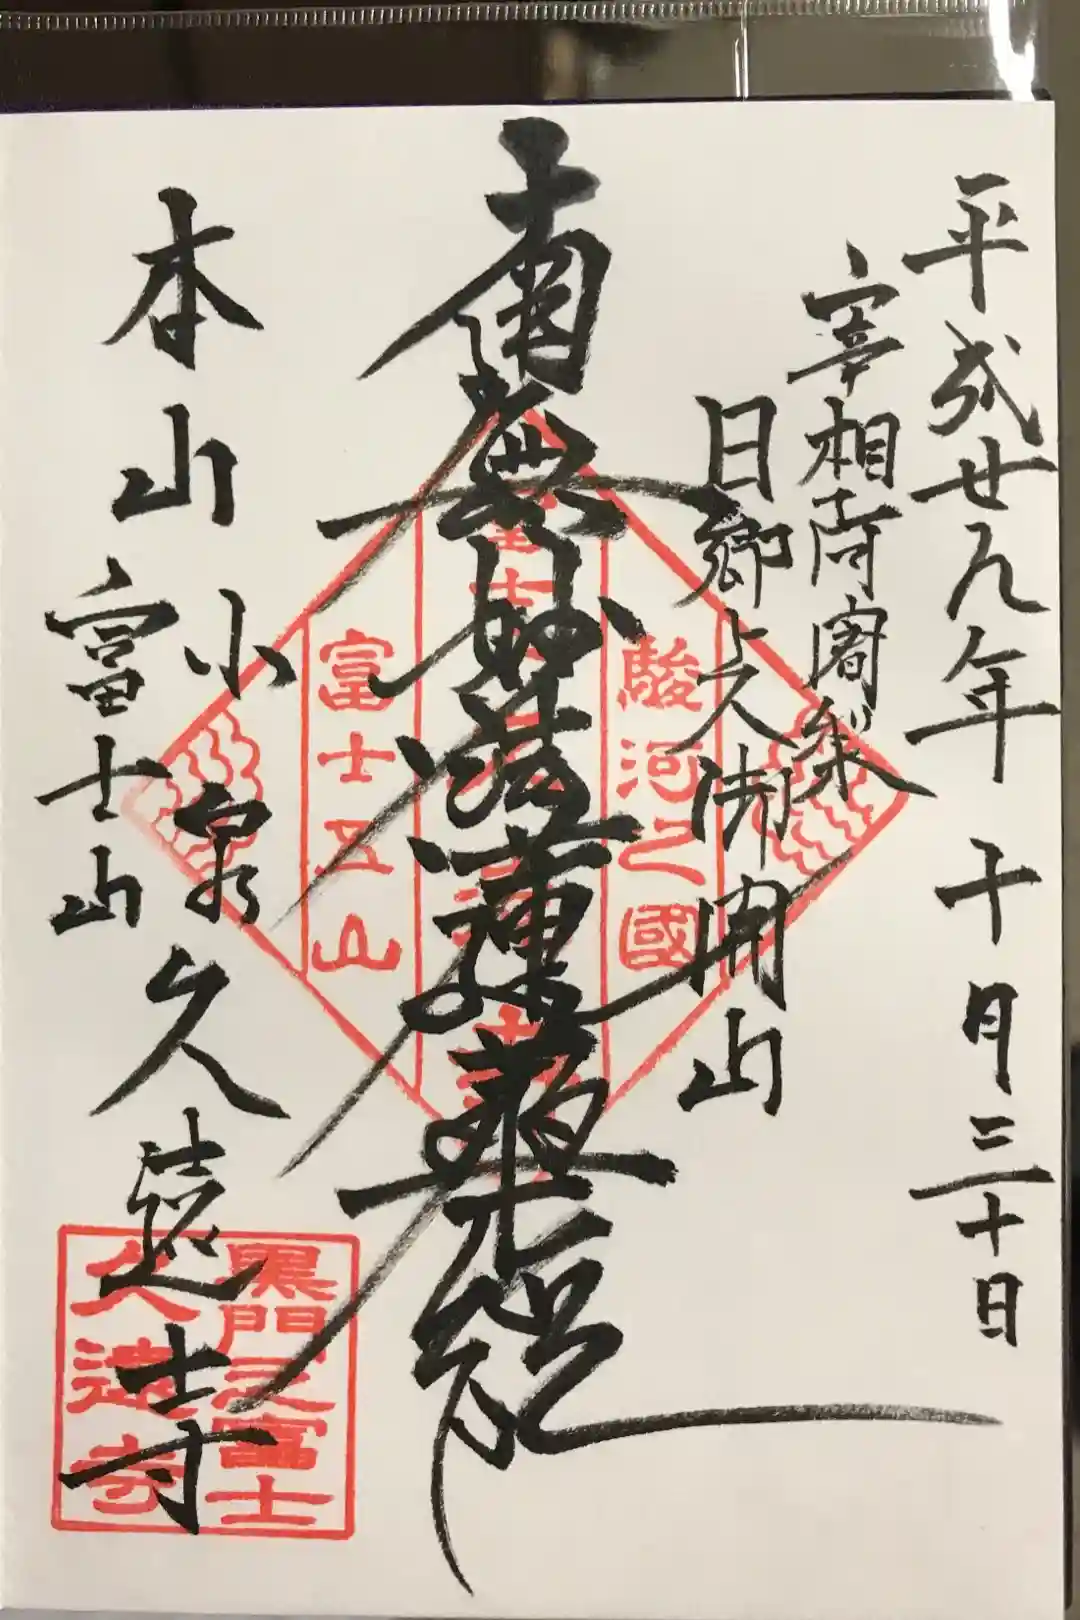 平成廿九年 十月三十日
宰相阿闍梨
日郷上人御開山
南無妙法蓮華経
本山
小泉久遠寺
富士山
駿河之國
富士五山
黒門之富士
久遠寺